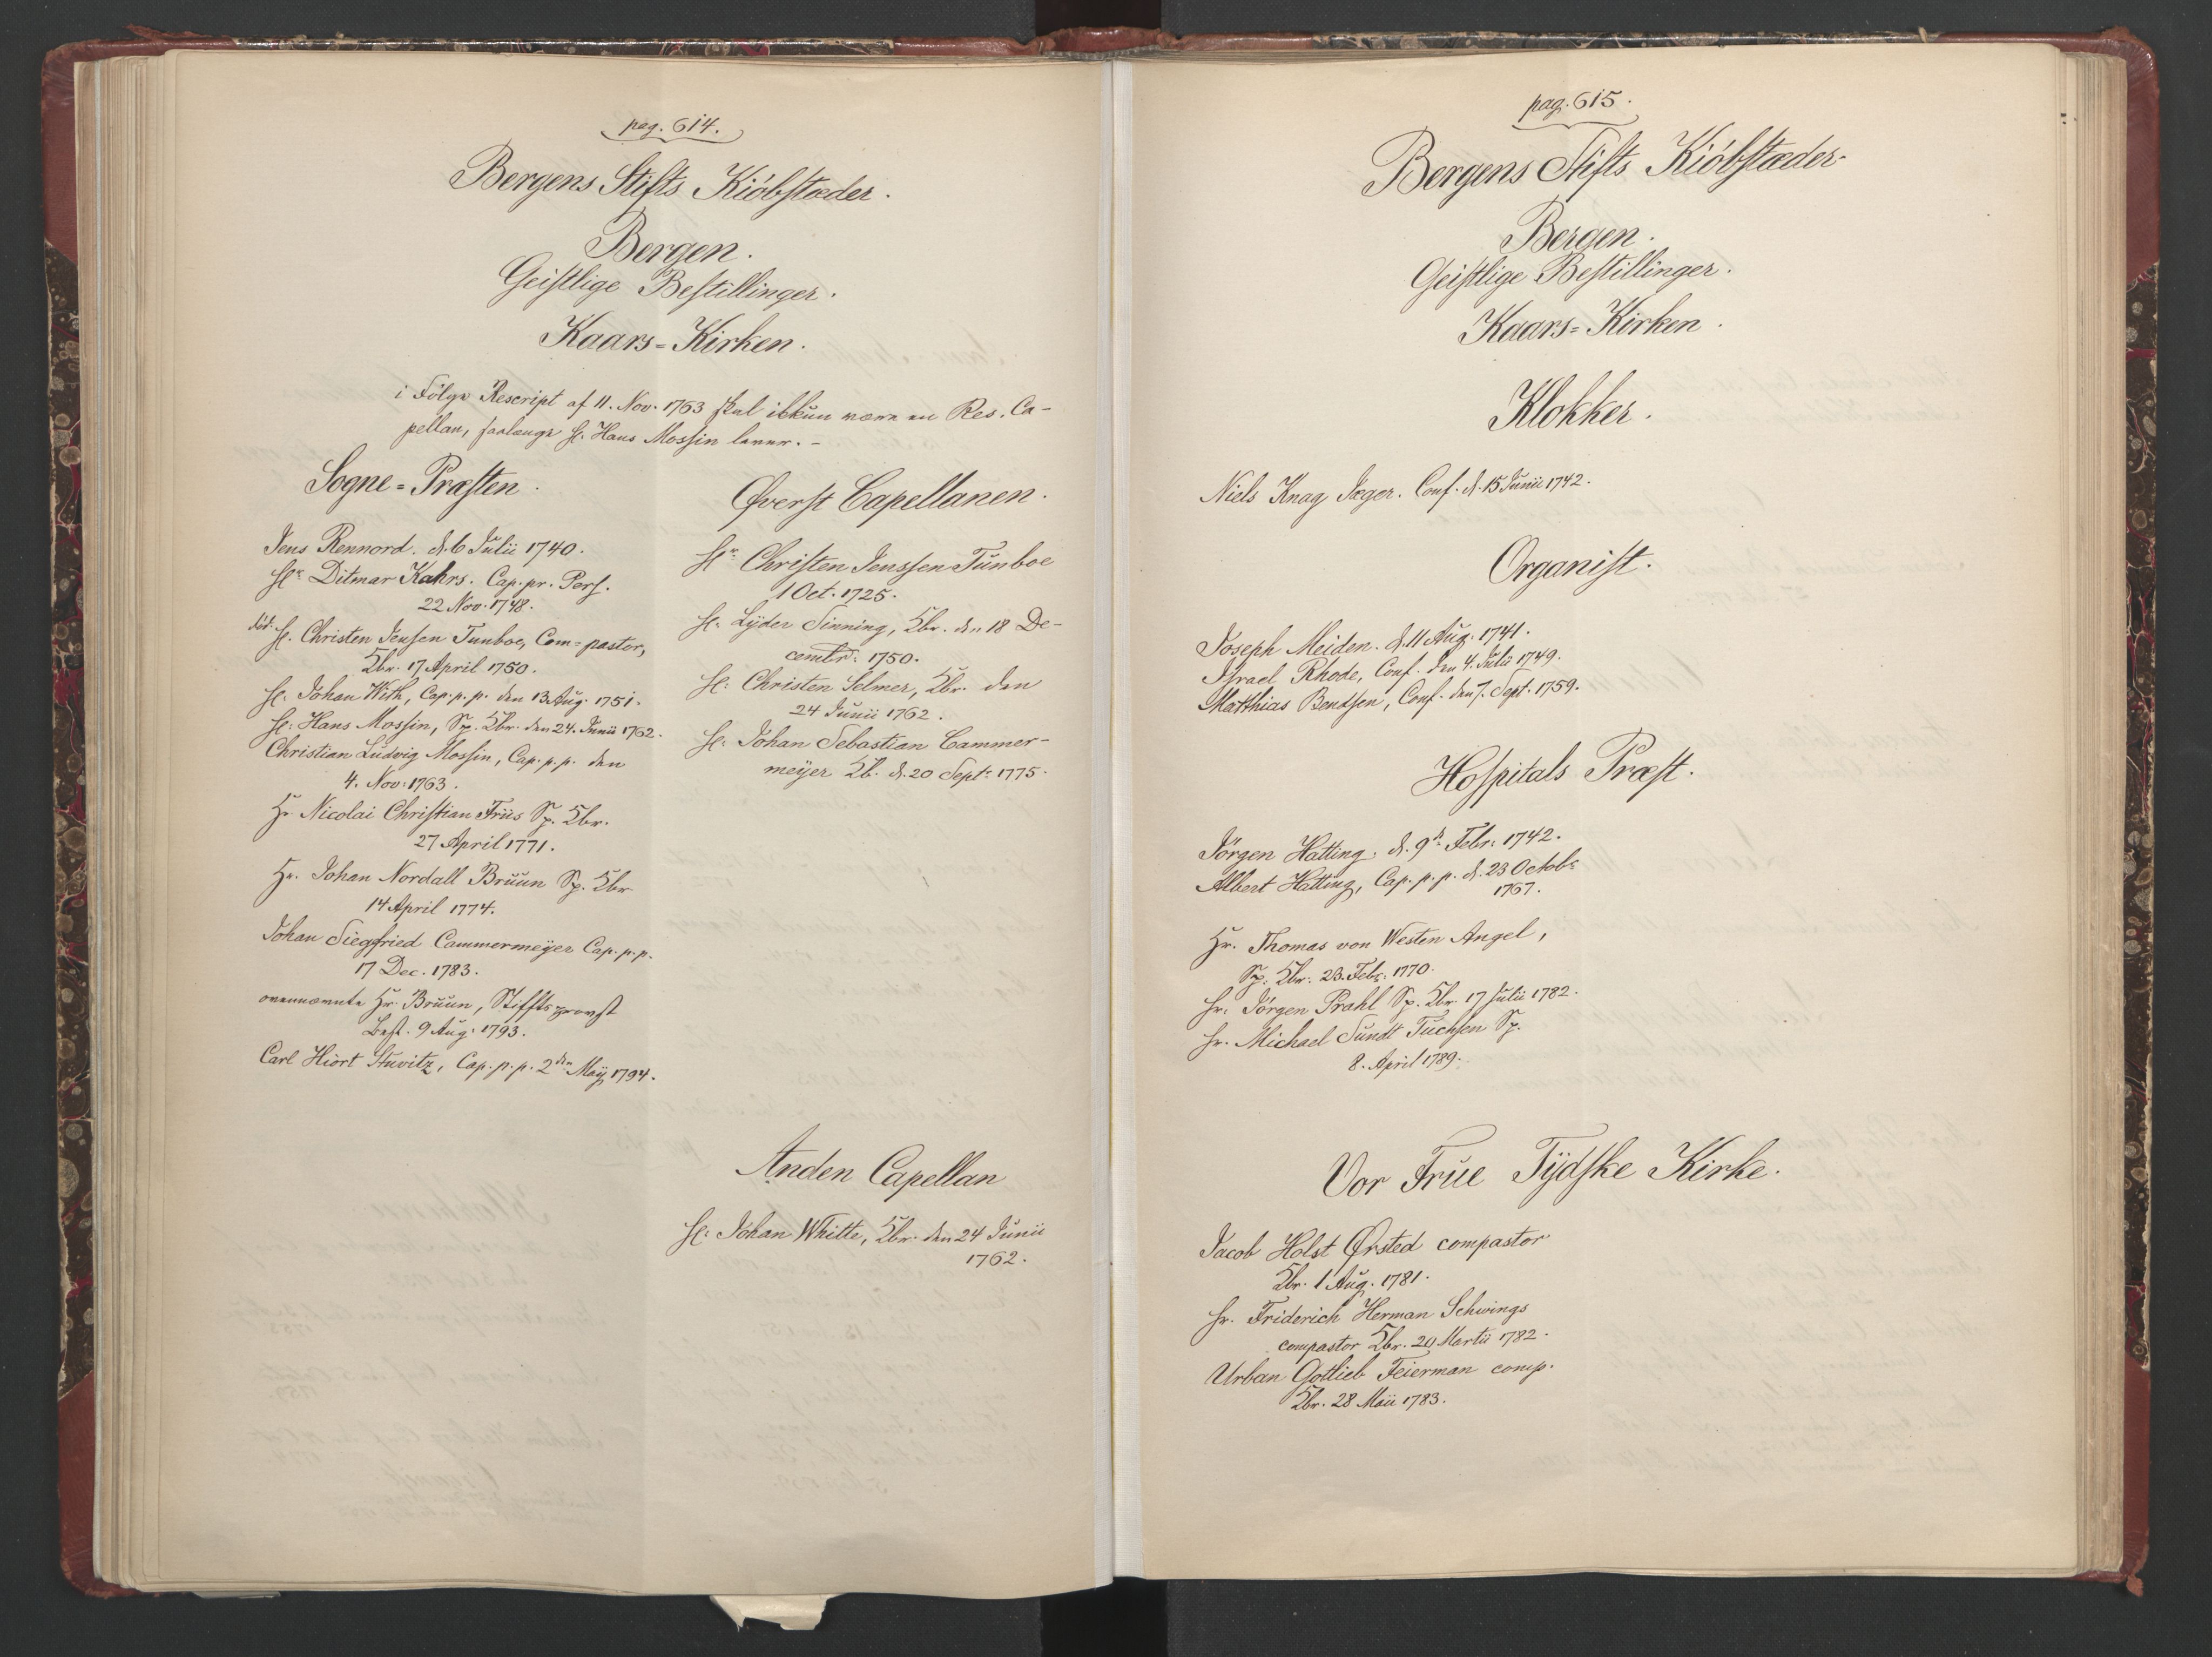 pag. 614.
Bergens Stifts Kiöbstæder.
Bergen.
Geistlige Bestillinger.
Kaars-Kirken.
i Fölge Rescript af 11. Nov. 1763 skal ikkun være en Res. Ca-
pellan, saalænge Hr. Hans Mossin lever. -
Sogne-Præsten.
Jens Rennord. d. 6 Julii 1740.
Hr. Ditmar Kahrs. Cap. pr. Pers.
22 Nov. 1748.
död. Hr. Christen Jensen Tunboe, Com-pastor,
Kbr. 17 April 1750.
Hr. Johan With, Cap. p. p. den 13 Aug. 1751.
Hr. Hans Mossin, Sp. Kbr. den 24. Junii 1762.
Christian Ludvig Mossin, Cap. p. p. den
4. Nov. 1763.
Hr. Nicolai Christian Friis Sp. Kbr.
27 April 1771.
Hr. Johan Nordall Bruun Sp. Kbr
14 April 1774.
Johan Siegfried Cammermeÿer Cap. p. p.
17 Dec. 1783.
ovennævnte Hr. Bruun, Stiftsprovst
Best. 9 Aug. 1793.
Carl Hiort Stuvitz, Cap. p. p. 2den Maÿ 1794.
Øverst Capellanen.
Hr. Christen Jenssen Tunboe
1 Oct. 1725.
Hr. Lÿder Sinning, Kbr. den 18 De-
cembr: 1750.
Hr. Christen Selmer, Kbr. den
24 Junii 1762.
Hr. Johan Sebastian Cammer-
meÿer Kb. d. 20 Septr. 1775.
Anden Capellan
Hr. Johan Whitte, Kbr. den 24 Junii
1762.
pag. 615.
Bergens Stifts Kiöbstæder
Bergen.
Geistlige Bestillinger.
Kaars-Kirken.
Klokker.
Niels Knag Jæger. Conf. d. 15 Junii 1742.
Organist.
Joseph Meiden. d. 11 Aug. 1741.
Israel Rhode, Conf. den 4. Julii 1749.
Matthias Bendsen, Conf. den 7. Sept. 1759.
Hospitals Præst.
Jörgen Hatting. d. 9de Febr: 1742.
Albert Hatting, Cap. p. p. d. 23 Octobr
1767.
Hr. Thomas von Westen Angel,
Sp. Kbr. 23. Febr: 1770.
Hr. Jörgen Prahl Sp. Kbr. 17 Julii 1782.
Hr. Michael Sundt Tuchsen Sp.
8. April 1789.
Vor Frue Tÿdske Kirke.
Jacob Holst Ørsted compastor
Kbr. 1 Aug. 1781.
Hr. Friderich Herman Schwings
compastor Kbr. 20 Martii 1782.
Urban Gottlieb Feierman comp.
Kbr. 28 Maii 1783.